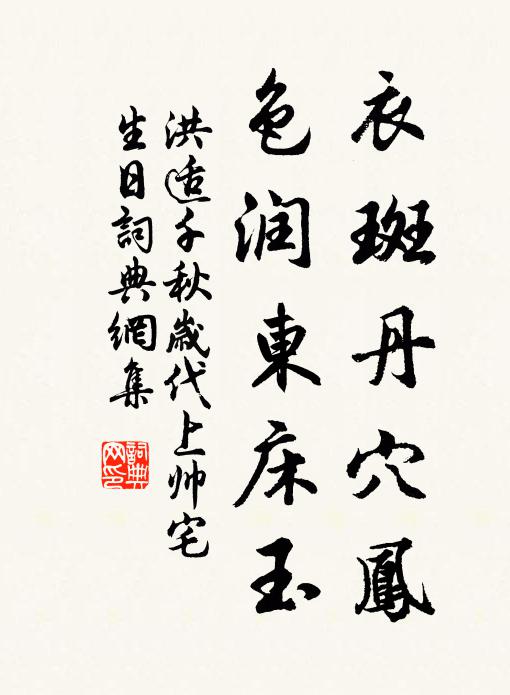 衣斑丹穴鳳
色润東床玉
洪适千秋歲代上帅宅
生日詞典網集
詞典
网印